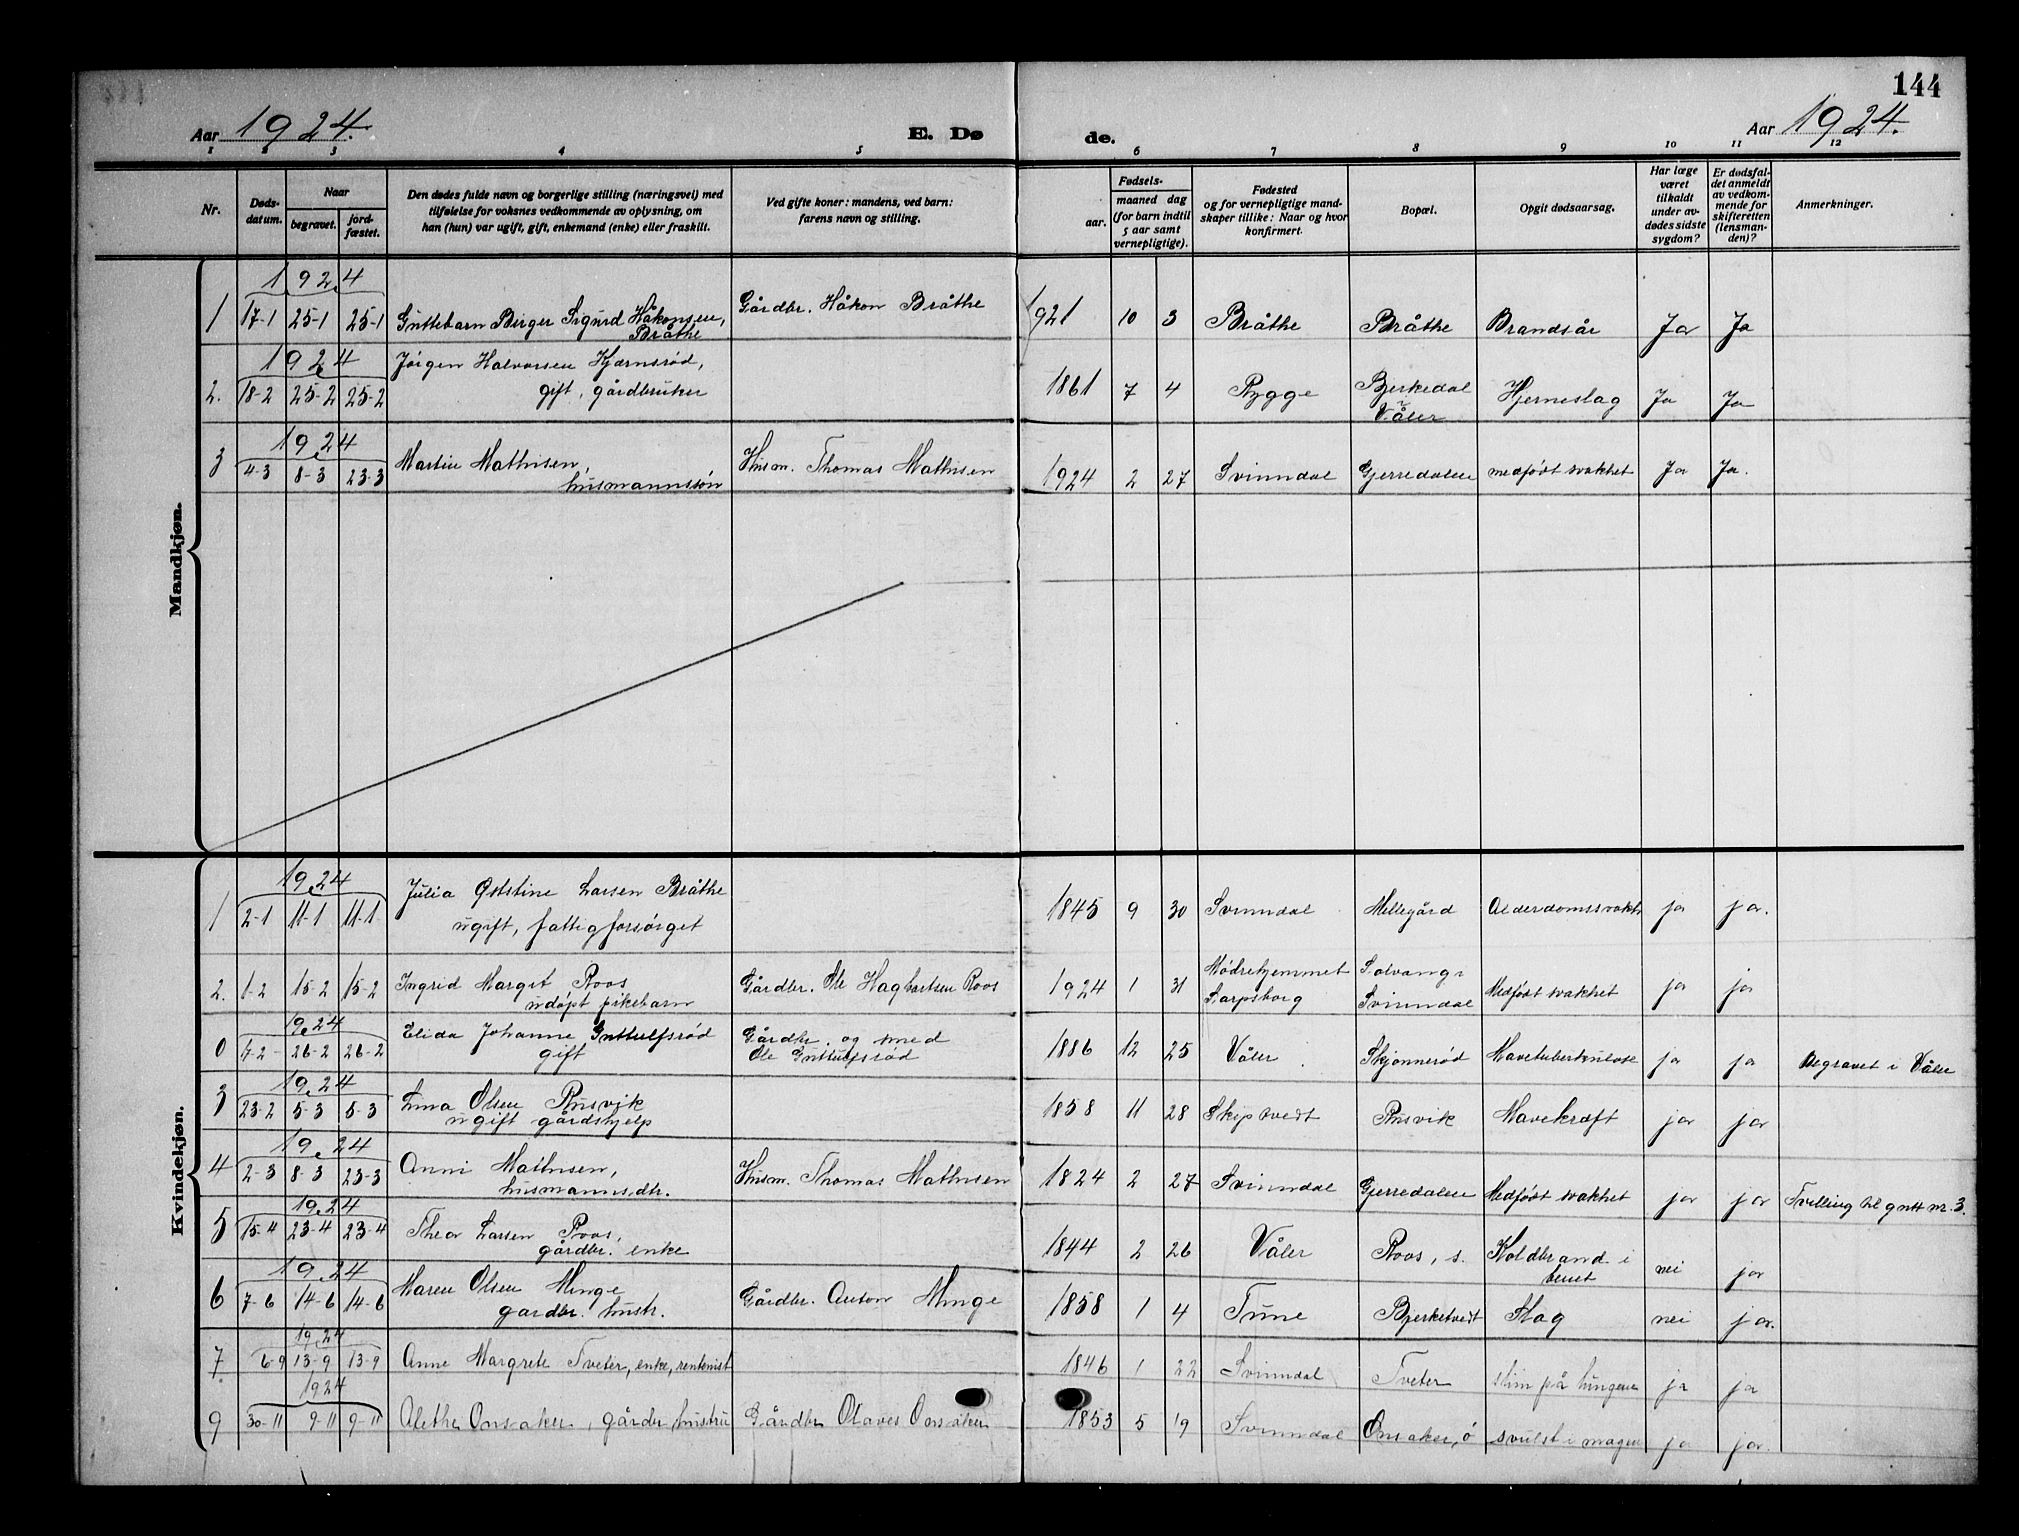 144
Aar 1924.
E. Dø
de.
Aar 1924.
1 2 3 4 5 6 7 8 9 10 11 12
Nr.
Døds-
datum.
Naar
begravet.
jord-
fæstet.
Den dødes fulde navn og borgerlige stilling (næringsvei) med
tilføielse for voksnes vedkommende av oplysning, om
han (hun) var ugift, gift, enkemand (enke) eller fraskilt.
Ved gifte koner: mandens, ved barn:
farens navn og stilling.
Fødsels-
aar.
maaned dag
(for barn indtil
5 aar samt
vernepligtige).
Fødested
og for vernepligtige mand-
skaper tillike: Naar og hvor
konfirmert.
Bopæl.
Opgit dødsaarsag.
Har læge
været
tilkaldt
under av-
dødes sidste
sygdom?
Er dødsfal-
det anmeldt
av vedkom-
mende for
skifteretten
(lensman-
den)?
Anmerkninger.
Mandkjøn.
1924
1 17-1 25-1 25-1 Guttebarn Birger Sigurd Håkonsen, Gårdbr. Håkon Bråthe 1921 10 3 Bråthe Bråthe Brandsår Ja Ja
Bråthe
1924
2. 18-2 25-2 25-2 Jörgen Halvorsen Kjærnsröd, 1861 7 4 Rygge Bjerkedal Hjerneslag Ja Ja
gift, gårdbruker
i Våler
1924
3 4-3 8-3 23-3 Martin Mathisen, Husm. Thomas Mathisen 1924 2 27 Svinndal Gjerredalen medfödt svakhet Ja Ja.
husmannssön
Kvindekjøn.
1924
1 2-1 11-1 11-1 Julia Oststine Larsen Bråthe 1845 9 30 Svinndal Mellegård Alderdomssvakh ja ja.
ugift, fattigforsörget
2. 1-2 15-2 15-2 Ingrid Margit Roos Gårdbr. Ole Haghartsen Roos 1924 1 31 Mödrehjemmet Solvang i Medfödt svakhet ja ja
udöpt pikebarn
Sarpsborg Svinndal
1924
0 4-2 26-2 26-2 Elida Johanne Guttulfsröd Gårdbr. og smed 1886 12 25 Våler Skjonneröd Mavetuberkulose ja ja Begravet i Våler
gift Ole Guttulfsröd
1924
3 23-2 5-3 5-3 Lina Olsen Rusvik 1858 11 28 Skiptvedt Rusvik Mavekræft ja ja
ugift gårdshjelp
1924
4 2-3 8-3 23-3 Anni Mathisen, Husm. Thomas Mathisen 1824 2 27 Svinndal Gjerredalen Medfödt svakhet ja ja Tvilling til gutt nr. 3.
husmannsdtr.
1924
5 15-4 23-4 23-4 Thea Larsen Roos, 1844 2 26 Våler Roos, s. Koldbrand i nei ja
gårdbr. enke
benet
1924
6 7-6 14-6 14-6 Maren Olsen Minge Gårdbr. Anton Minge 1858 1 4 Tune Bjerketvedt Slag nei ja.
gardbr. hustr.
1924
7. 6-9 13-9 13-9 Anne Margrete Tveter, enke, rentenist 1846 1 22 Svinndal Tveter slim på lungene ja ja
1924
9 30-11 9-11 9-11 Alethe Onsaker, gårdbr. hustru Gårdbr Olaves Onsaker 1853 5 19 Svinndal Onsaker, ö svulst i magen ja ja.